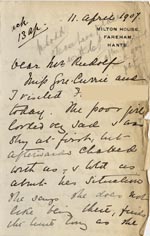 11. April 1907.
MILTON HOUSE,
FAREHAM,
HANTS.
Dear Mr Rudolf
Miss Gore Currie and
I visited F.
today. The poor girl
looked very sad & was
shy at first, but
afterwards chatted
with us, & told us
about her situation
She says she does not
like being there, finds
the time long as the